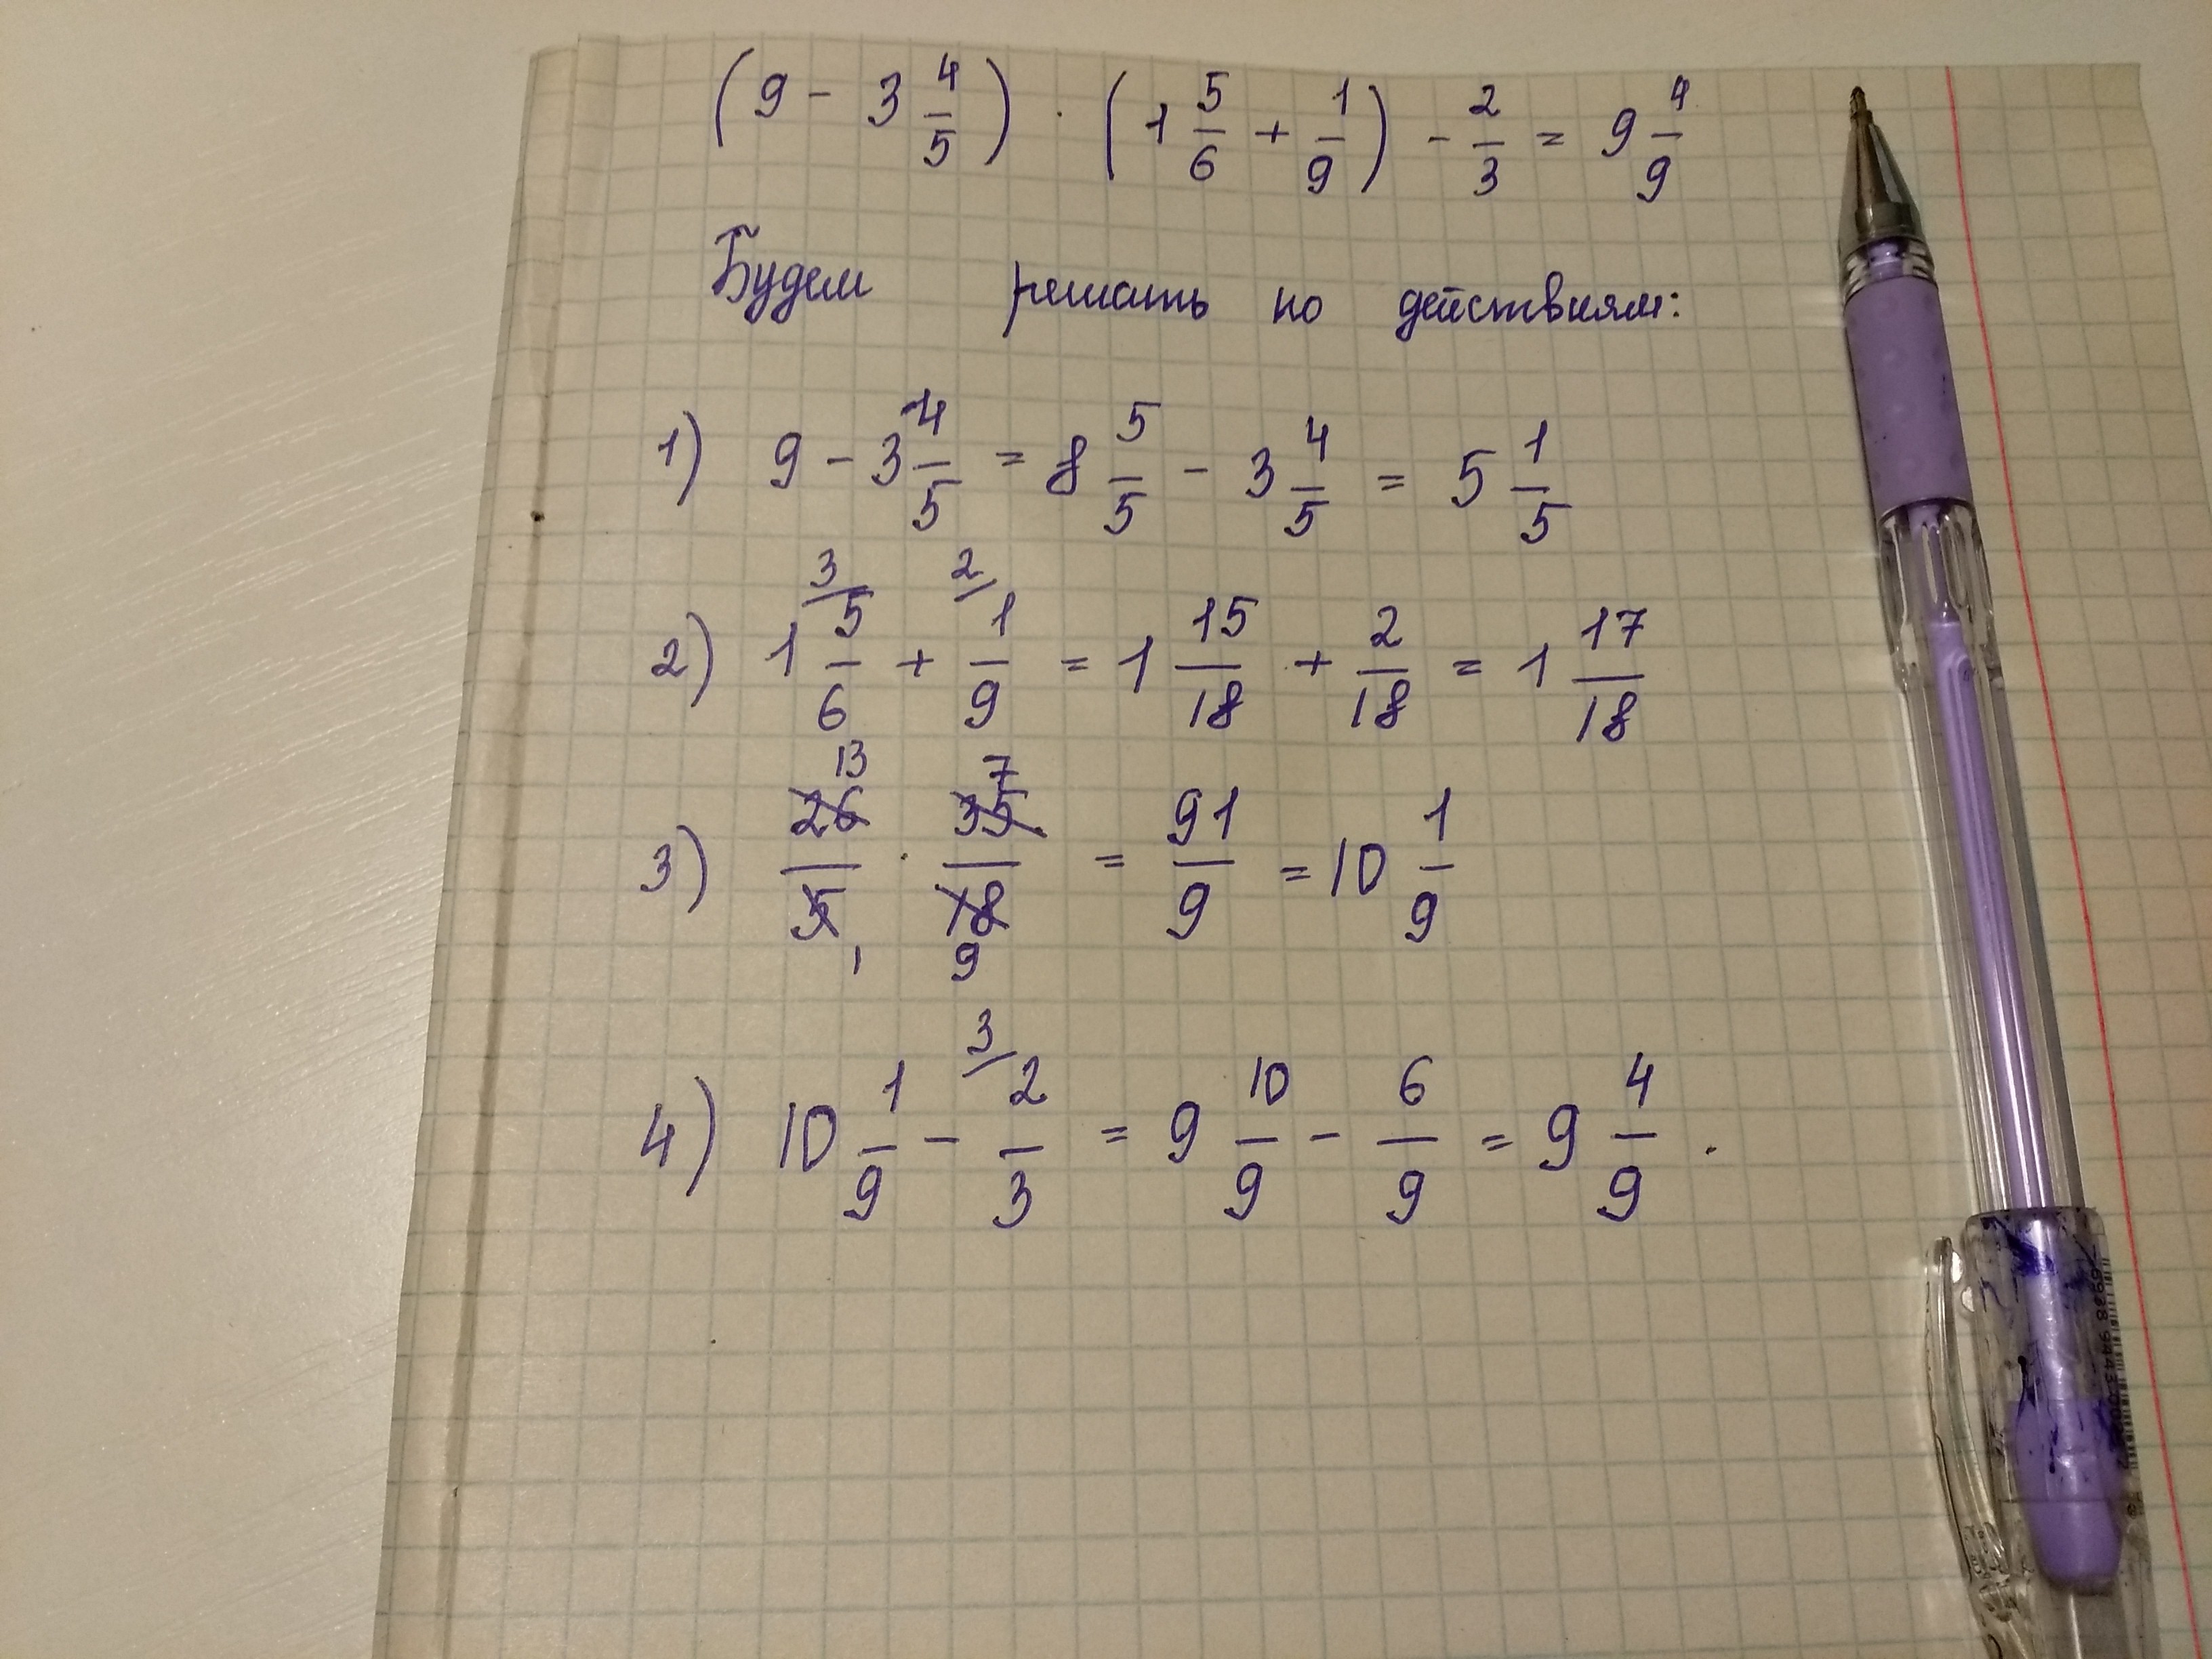 (9 - 3 4/5) · (1 5/6 + 1/9) - 2/3 = 9 4/9
Будем решать по действиям:
1) 9 - 3 4/5 = 8 5/5 - 3 4/5 = 5 1/5
3 2
2) 1 5/6 + 1/9 = 1 15/18 + 2/18 = 1 17/18
13 7
3) 26/5 · 35/18 = 91/9 = 10 1/9
1 9
3
4) 10 1/9 - 2/3 = 9 10/9 - 6/9 = 9 4/9.